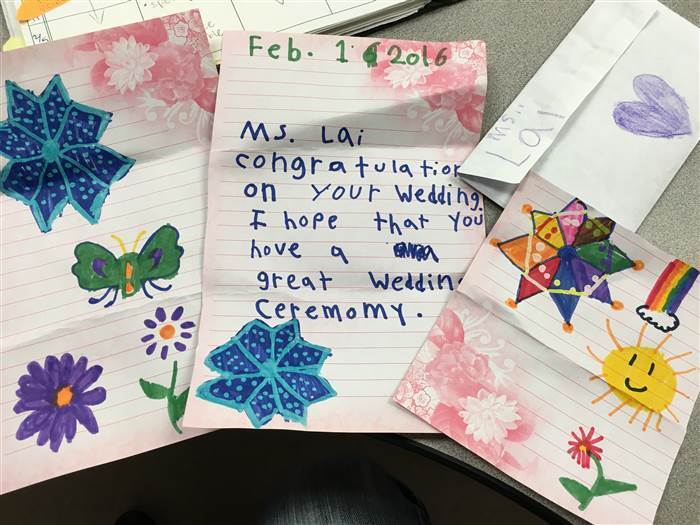 Feb. 1 2016
Ms. Lai
congratulation
on your Wedding.
I hope that you
hove a
great Wedding
Ceremomy.
Ms.
Lai